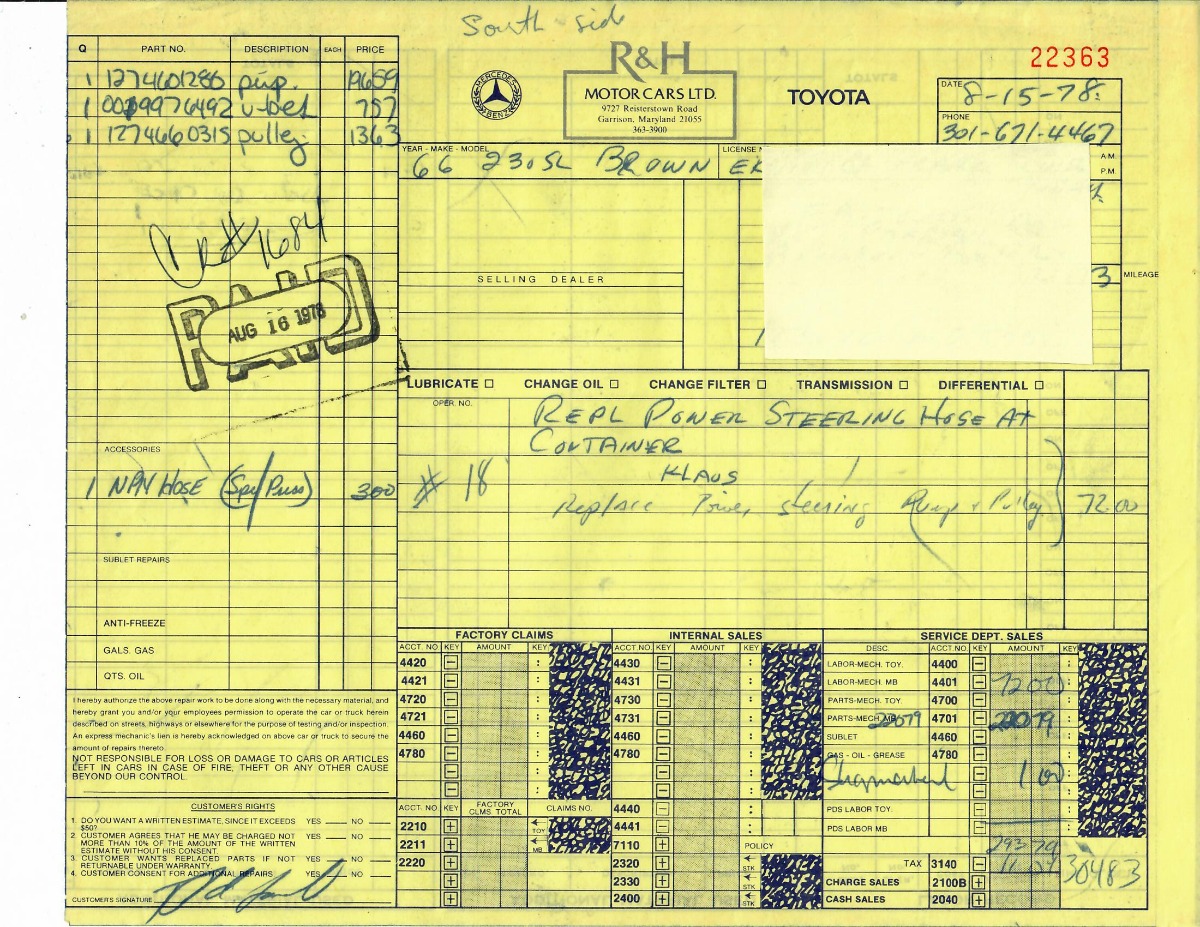 South side
R&H
MOTOR CARS LTD.
9727 Reisterstown Road
Garrison, Maryland 21055
363-3900
MERCEDES BENZ
TOYOTA
22363
DATE 8-15-78
PHONE
301-671-4467
A.M.
P.M.
Q PART NO. DESCRIPTION EACH PRICE
1 1274601280 pup. 19659
1 0019976492 u-belt 757
1 1274660315 pulley 1363
YEAR - MAKE - MODEL LICENSE N
66 230SL BROWN
SELLING DEALER
3 MILEAGE
1684
PAID
AUG 16 1978
LUBRICATE CHANGE OIL CHANGE FILTER TRANSMISSION DIFFERENTIAL
OPER. NO.
REPL POWER STEERING HOSE AT
CONTAINER
# 18 KLAUS
Replace Power steering Pump + Pulley 72.00
ACCESSORIES
1 NPN HOSE (Spr/Puss) 300
SUBLET REPAIRS
ANTI-FREEZE
GALS. GAS
QTS. OIL
I hereby authorize the above repair work to be done along with the necessary material, and
hereby grant you and/or your employees permission to operate the car or truck herein
described on streets, highways or elsewhere for the purpose of testing and/or inspection.
An express mechanic's lien is hereby acknowledged above car or truck to secure the
amount of repairs thereto.
NOT RESPONSIBLE FOR LOSS OR DAMAGE TO CARS OR ARTICLES
LEFT IN CARS IN CASE OF FIRE, THEFT OR ANY OTHER CAUSE
BEYOND OUR CONTROL.
CUSTOMER'S RIGHTS
1. DO YOU WANT A WRITTEN ESTIMATE, SINCE IT EXCEEDS
$50? YES NO
2. CUSTOMER AGREES THAT HE MAY BE CHARGED NOT
MORE THAN 10% OF THE AMOUNT OF THE WRITTEN
ESTIMATE WITHOUT HIS CONSENT. YES NO
3. CUSTOMER WANTS REPLACED PARTS IF NOT
RETURNABLE UNDER WARRANTY. YES NO
4. CUSTOMER CONSENT FOR ADDITIONAL REPAIRS YES NO
CUSTOMER'S SIGNATURE
FACTORY CLAIMS
ACCT. NO KEY AMOUNT KEY
4420
4421
4720
4721
4460
4780
ACCT. NO KEY FACTORY CLMS TOTAL CLAIMS NO.
2210 TOY
2211 MB
2220
INTERNAL SALES
ACCT.NO. KEY AMOUNT KEY
4430
4431
4730
4731
4460
4780
4440
4441
7110 POLICY
2320 STK
2330 STK
2400 STK
SERVICE DEPT. SALES
DESC. ACCT.NO. KEY AMOUNT KEY
LABOR-MECH. TOY. 4400
LABOR-MECH. MB 4401 7200
PARTS-MECH. TOY 4700
PARTS-MECH. MB 22079 4701 22079
SUBLET 4460
GAS - OIL - GREASE 4780
100
PDS LABOR TOY.
PDS LABOR MB
293 79
TAX 3140 11 04
CHARGE SALES 2100B 30483
CASH SALES 2040